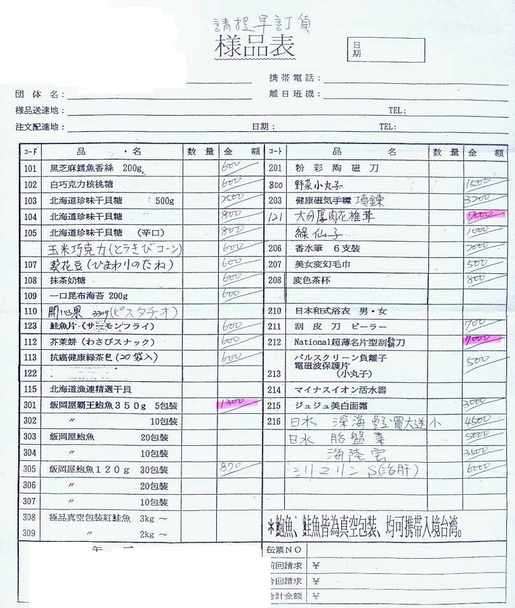 請提早訂貨
様品表
日期
携帯電話:
団体名:
離日班機:
様品送達地:
TEL:
注文配達地:
日期:
TEL:
コード 品・名 数量 金額
101 黒芝麻鱈魚香絲 200g 600
102 白巧克力核桃糖 600
103 北海道珍味干貝糖 500g
104 北海道珍味干貝糖 800
105 北海道珍味干貝糖 (辛口) 800
玉米巧克力(とうきびコーン) 600
107 葵花豆(ひまわりのたね) 600
108 抹茶奶糖 600
109 一口昆布海苔 200g 600
110 開心果 (ピスタチオ)
123 鮭魚片 600
112 芥茉餅(わさびスナック) 600
113 抗癌健康緑茶包(20袋入) 600
122
115 北海道漁連精選干貝
301 飯岡屋覇王鮑魚350g 5包装 1300
302 〃 10包装
303 飯岡屋鮑魚 20包装
304 〃 10包装
305 飯岡屋鮑魚120g 30包装 870
306 〃 20包装
307 〃 10包装
308 極品真空包装紅鮭魚 3kg ~
309 〃 2kg ~
コード 品・名 数量 金額
201 粉彩陶磁刀
800 野菜小丸子 1500
203 健康磁気手環 項鍊
121
1000
206 香水筆 6支装
207 美女変幻毛巾 500
208 変色茶杯 800
210 日本和式浴衣 男・女
211 刮皮刀 ピーラー 700
212 National超薄名片型刮鬍刀 7000
213 パルスクリーン負離子電磁波保護片 (小丸子) 500
214 マイナスイオン活水器
215 ジュジュ美白面霜 3000
216 日水 深海 買大送小 4500
日水 胎盤素
海陸雲
シリマリンS(治肝) 6000
*鮑魚、鮭魚皆為真空包装、均可携帯入境台湾。
伝票NO
前回請求 ¥
今回請求 ¥
合計金額 ¥